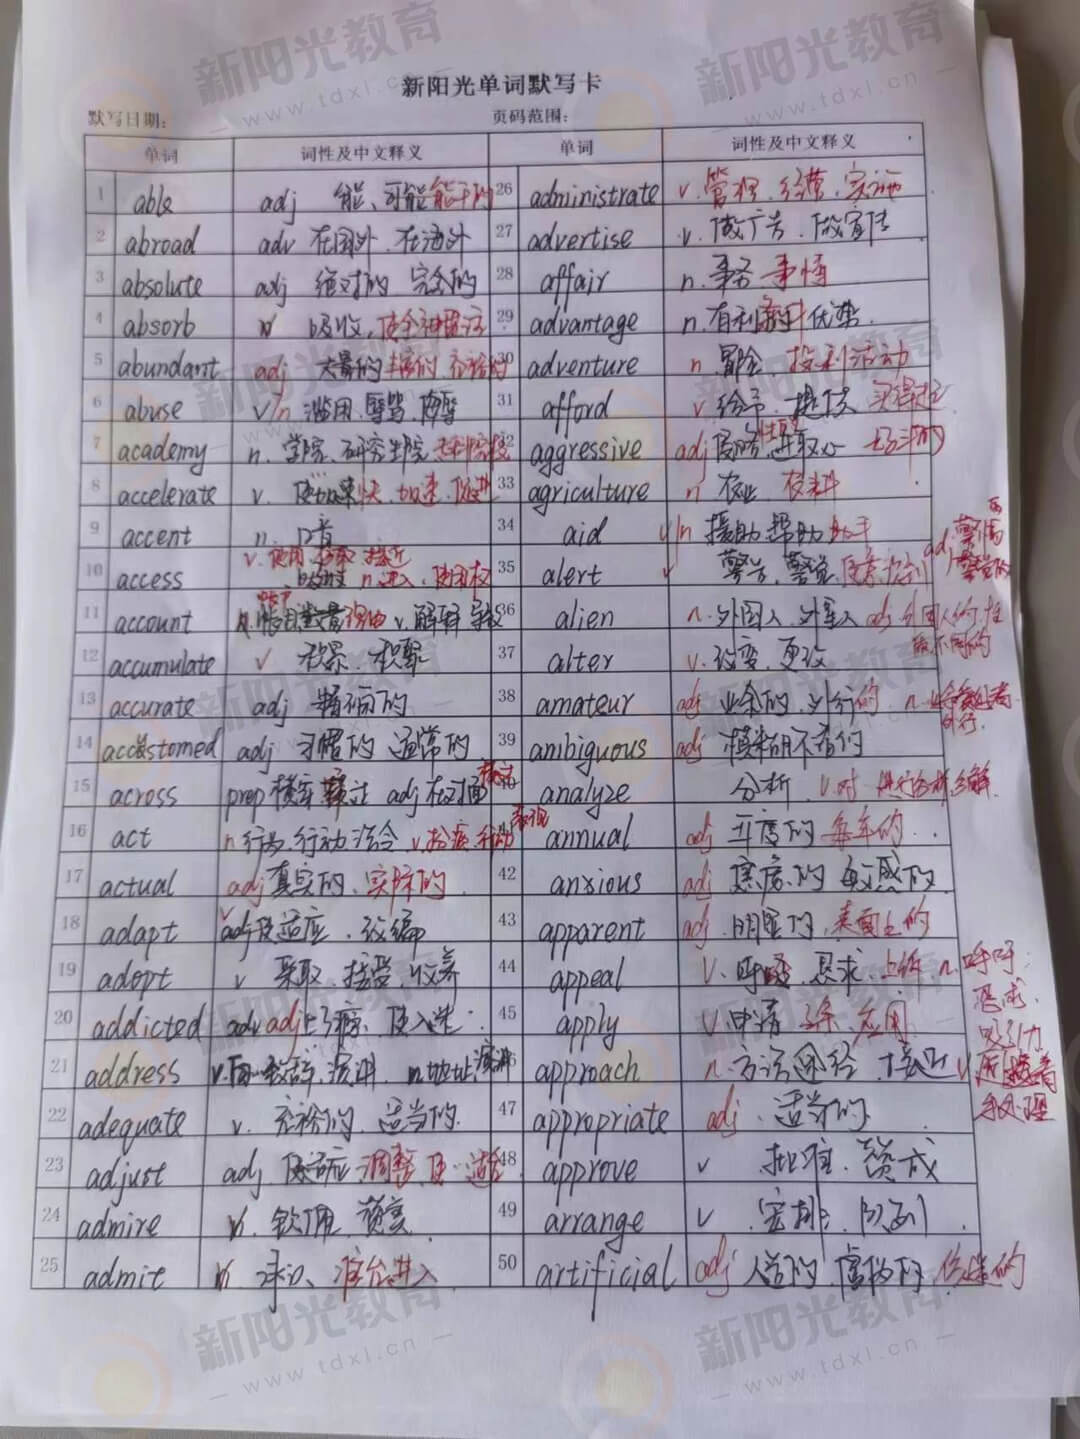 新阳光单词默写卡
默写日期: 页码范围:
单词 词性及中文释义 单词 词性及中文释义
1 able adj 能、可能 能干的 26 administrate v. 管理、经营、实施
2 abroad adv 在国外、在海外 27 advertise v. 做广告、做宣传
3 absolute adj 绝对的 完全的 28 affair n. 事务 事情
4 absorb v 吸收, 29 advantage n. 有利 优势.
5 abundant adj 大量的 丰富的 充裕的 30 adventure n 冒险、投机活动
6 abuse v/n 滥用、辱骂、 31 afford v 给予、提供 买得起
7 academy n. 学院、研究生院 32 aggressive adj 侵略 进取心 好斗的
8 accelerate v. 使加速 加快、加速、促进 33 agriculture n 农业、农耕
9 accent n. 口音 34 aid v/n 援助 帮助 助手
10 access v. 使用 接近 n. 进入、使用权 35 alert v 警告、警觉 adj. 警惕 警觉的
11 account n. 账目 理由 v. 解释 导致 36 alien n. 外国人、外星人 adj 外国人的 不同的
12 accumulate v 积累、积聚 37 alter v. 改变、更改
13 accurate adj 精确的 38 amateur adj 业余的、外行的、n. 业余爱好者 外行.
14 accustomed adj 习惯的 通常的 39 ambiguous adj 模糊不清的
15 across prep 横穿 adj 在对面 40 analyze 分析、v. 对…进行分析
16 act n 行为、行动 法令 v. 扮演 行动 表现 annual adj 年度的 每年的..
17 actual adj 真实的、实际的. 42 anxious adj 焦虑的 敏感的.
18 adapt v 使适应、改编 43 apparent adj. 明显的、表面上的
19 adopt v 采取、接受、收养 44 appeal v. 呼吁 恳求、上诉 n. 呼吁: 恳求. 吸引力
20 addicted adv adj 上了瘾、使入迷 45 apply v. 申请 涂、应用
21 address v. 向…致辞、演讲. n. 地址 演讲 approach n. 方法 途径、接近 v 着手处理
22 adequate v. 充裕的、适当的. 47 appropriate adj. 适当的
23 adjust adj. 使适应 调整 使…适合 48 approve v 批准、赞成
24 admire v. 钦佩 赞赏. 49 arrange v 安排、队列.
25 admit v 承认、准许进入 50 artificial adj 人造的、虚伪的 伪造的
新阳光教育
www.tdxl.cn